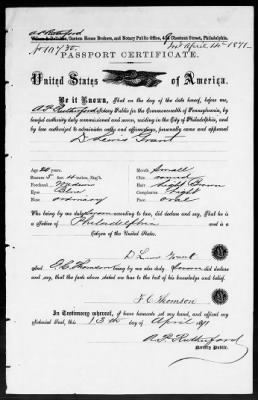 Custom House Brokers, and Notary Public Office, Chestnut Street, Philadelphia.
April 14th 1871
PASSPORT CERTIFICATE.
United States of America.
Be it Known, That on the day of the date hereof, before me,
Notary Public for the Commonwealth of Pennsylvania, by
lawful authority duly commissioned and sworn, residing in the City of Philadelphia, and
by law authorized to administer oaths and affirmations, personally came and appeared
D Lewis Grant
Age years Mouth Small
Stature 5 ft 11 inches, Eng'h Chin round
Forehead Hair Light Brown
Eyes Blue Complexion light
Nose ordinary Face oval
Who being by me duly sworn according to law, did declare and say, That he is a
citizen of Philadelphia and a
Citizen of the United States.
D Lewis Grant
and F. C. Thomson being by me also duly sworn did declare
and say, that the facts above stated are true to the best of his knowledge and belief.
F C Thomson
In Testimony whereof, I have hereunto set my hand, and affixed my
Notarial Seal, this 13th day of April 1871
Rutherford
Notary Public.